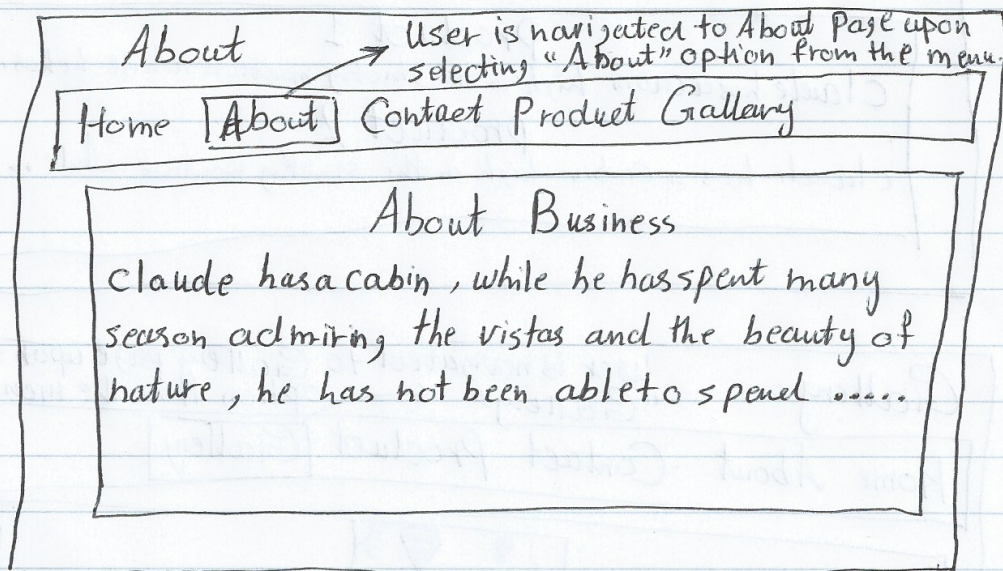 About
User is navigated to About Page upon
selecting "About" option from the menu.
Home About Contact Product Gallery
About Business
Claude has a cabin, while he has spent many
season admiring the vistas and the beauty of
nature, he has not been able to spend .....